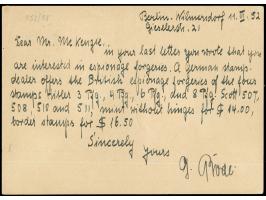 Berlin-Wilmersdorf 11. VI. 52
Gieselerstr. 21
Dear Mr. Mc Kenzie..
in your last letter you wrote that you
are interested in espionage forgeries. A german stamp-
dealer offers the British espionage forgeries of the four
stamps Hitler 3 Pfg, 4 Pfg, 6 Pfg, and 8 Pfg. Scott 507,
508, 510 and 511, mint without hinges for $ 14.00,
border stamps for $ 16.50
Sincerely
Yours
G.